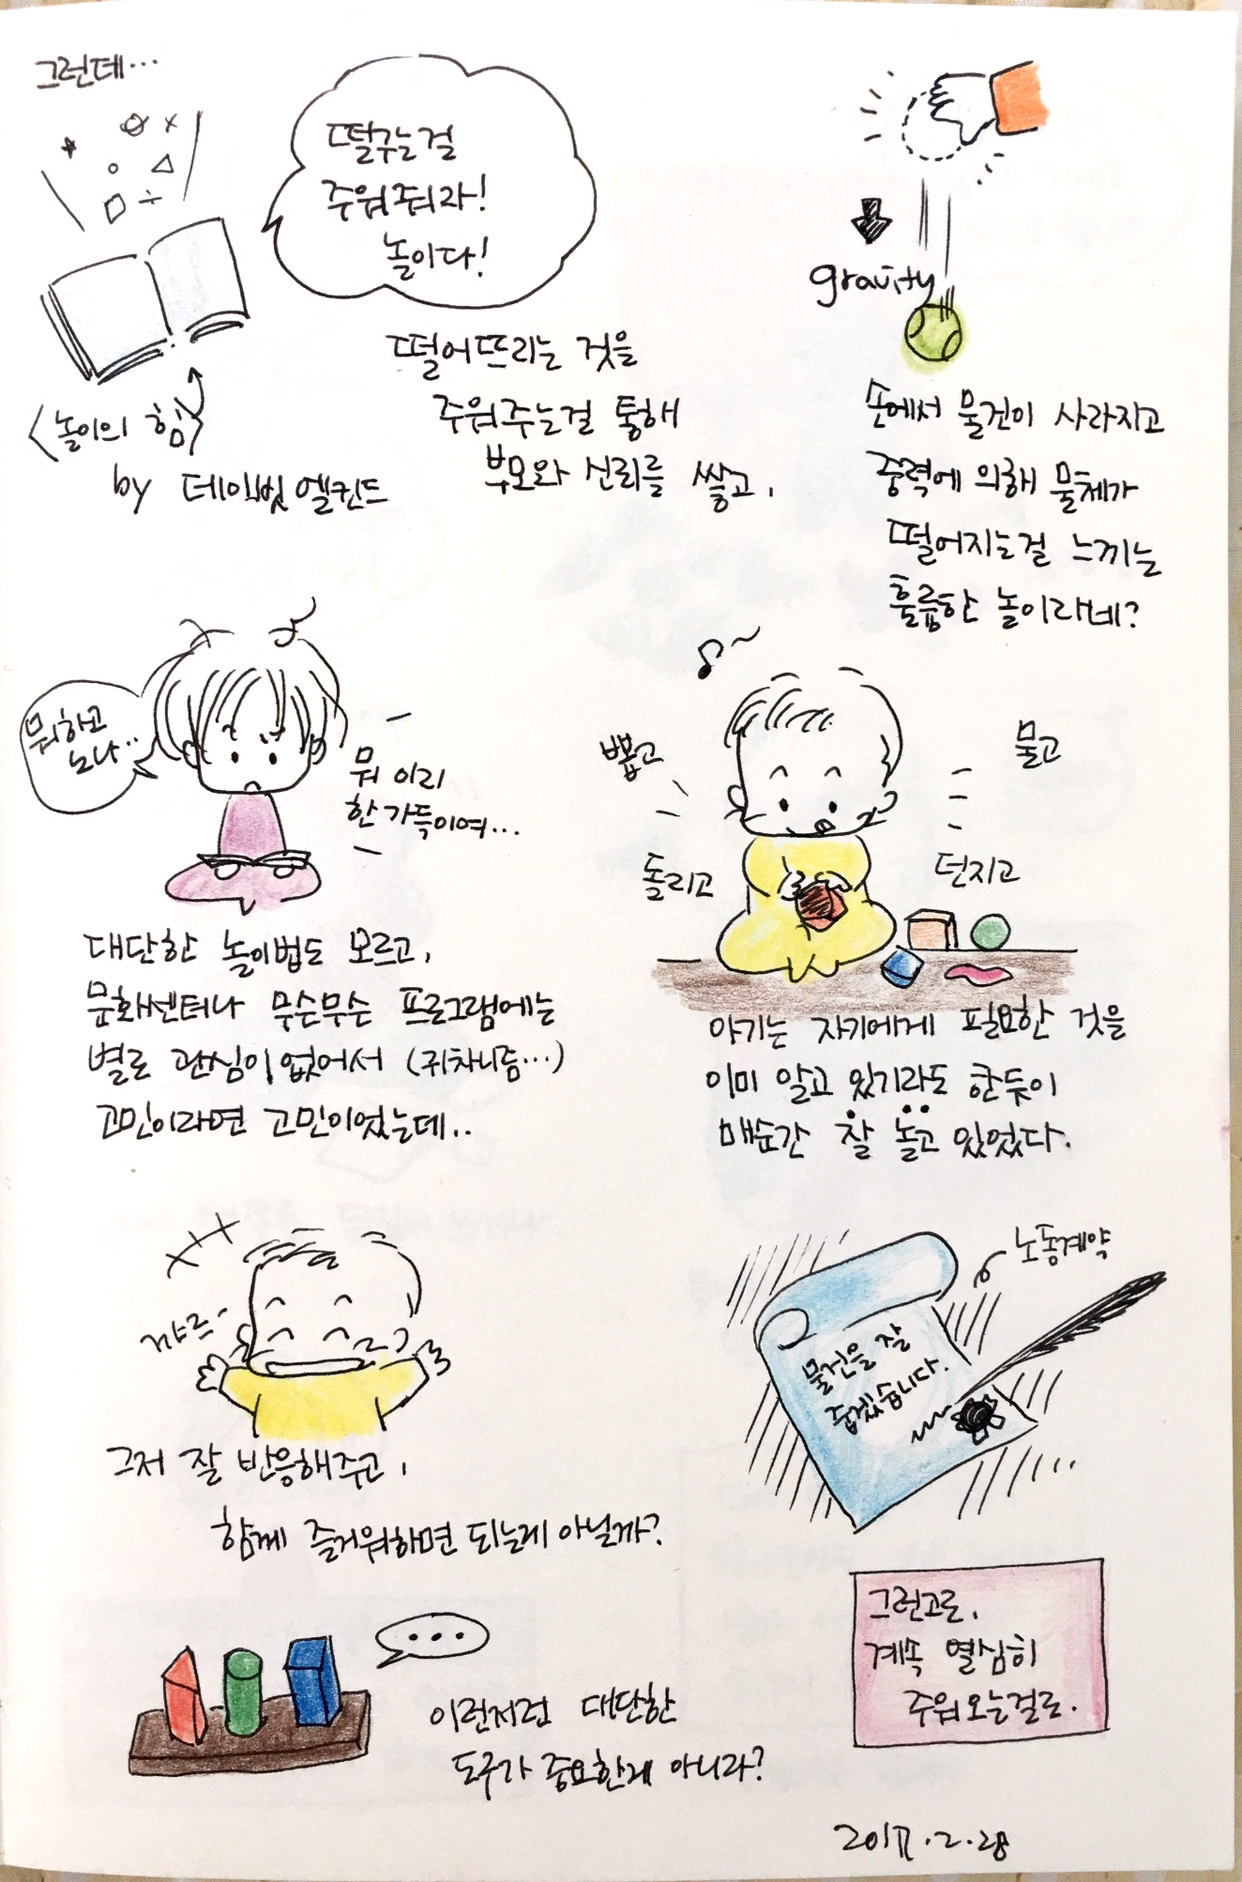 그런데...
떨구는걸
주워줘라!
놀이다!
<놀이의 힘>
by 데이빗 엘킨드
떨어뜨리는 것을
주워주는걸 통해
부모와 신뢰를 쌓고,
gravity
손에서 물건이 사라지고
중력에 의해 물체가
떨어지는걸 느끼는
훌륭한 놀이라네?
뭐하고
노나..
뭐 이리
한가득이여...
대단한 놀이법도 모르고,
문화센터나 무슨무슨 프로그램에는
별로 관심이 없어서 (귀차니즘...)
고민이라면 고민이었는데..
뽑고
물고
돌리고
던지고
아기는 자기에게 필요한 것을
이미 알고 있기라도 한듯이
매순간 잘 놀고 있었다.
꺄르~
그저 잘 반응해주고,
함께 즐거워하면 되는게 아닐까?
노동계약
물건을 잘
줍겠습니다.
...
이런저런 대단한
도구가 중요한게 아니라?
그런고로,
계속 열심히
주워오는걸로.
2017.2.28